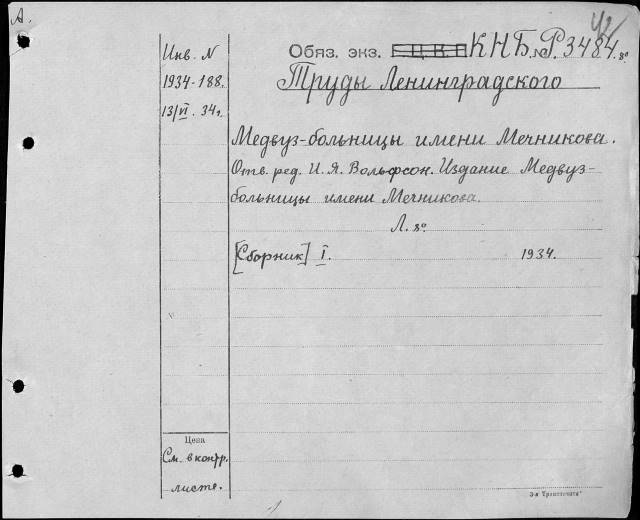 А.
42
Инв. N
1934-188.
13/VI. 34г.
Обяз. экз. Г.Ц.К.П КНБ.№Р.3484.8°
Труды Ленинградского
Медвуз-больницы имени Мечникова.
Отв. ред. И. Я. Вольфсон. Издание Медвуз-
больницы имени Мечникова.
Л. 8°
[Сборник] I. 1934.
Цена
См. в контр.
листе.
З-я "Транспечати"